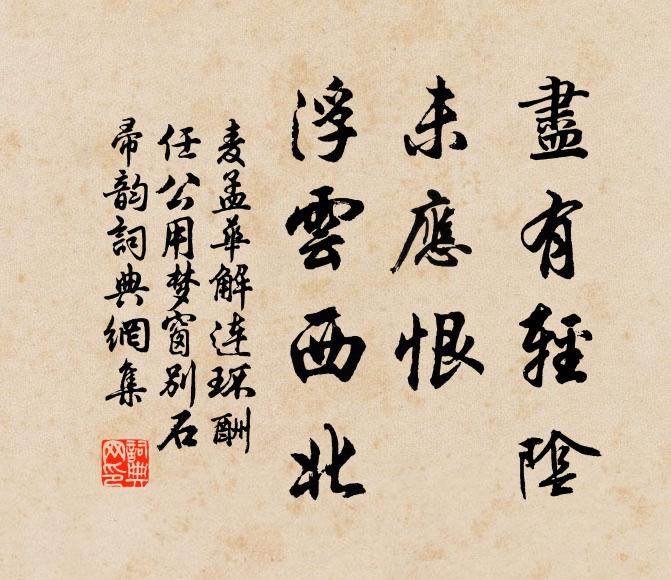 盡有輕陰
未應恨
浮雲西北
麦孟華解连环酬
任公用梦窗别石
帚韵詞典網集
詞典
网印